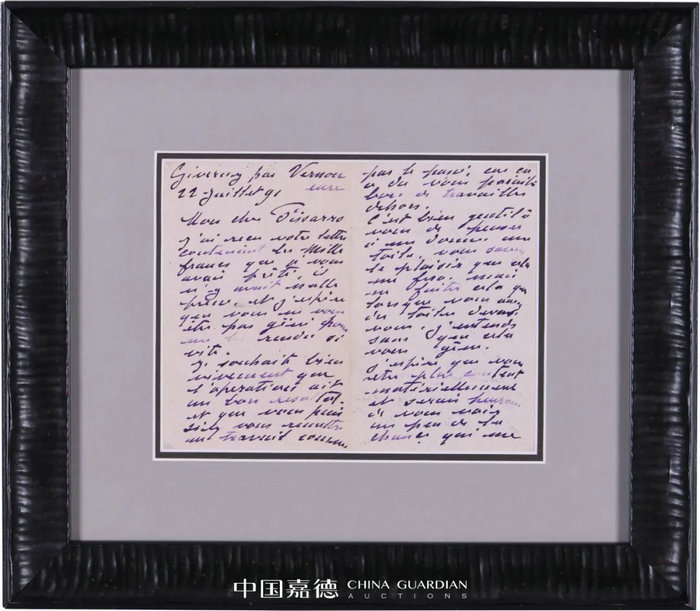 Giverny par Vernon
22 Juillet 91 eure
Mon cher Pissarro
J'ai reçu votre lettre
contenant les mille
francs que je vous
avais prêté, il
n'y avait nulle
presse, et j'espère
que vous ne vous
ête pas gêné pour
me les rendre si
vite.
Je souhaite bien
vivement que
l'opération ait
un bon résultat
et que vous puis
siez vous remettre
au travail comme
pas le passé, car ce
a du vous paraître
bon de travailler
dehors.
C'est bien gentil à
vous de penser
à me donner une
toile, vous savez
le plaisir que cela
me fera, mais
ne faites cela que
lorsque vous aurez
des toiles devant
vous, j'entends
sans que cela
vous gêne.
J'espère que vous
ête plus content
matériellement
et serais heureux
de vous voir
un peu de la
chance qui me
中国嘉德 CHINA GUARDIAN
AUCTIONS